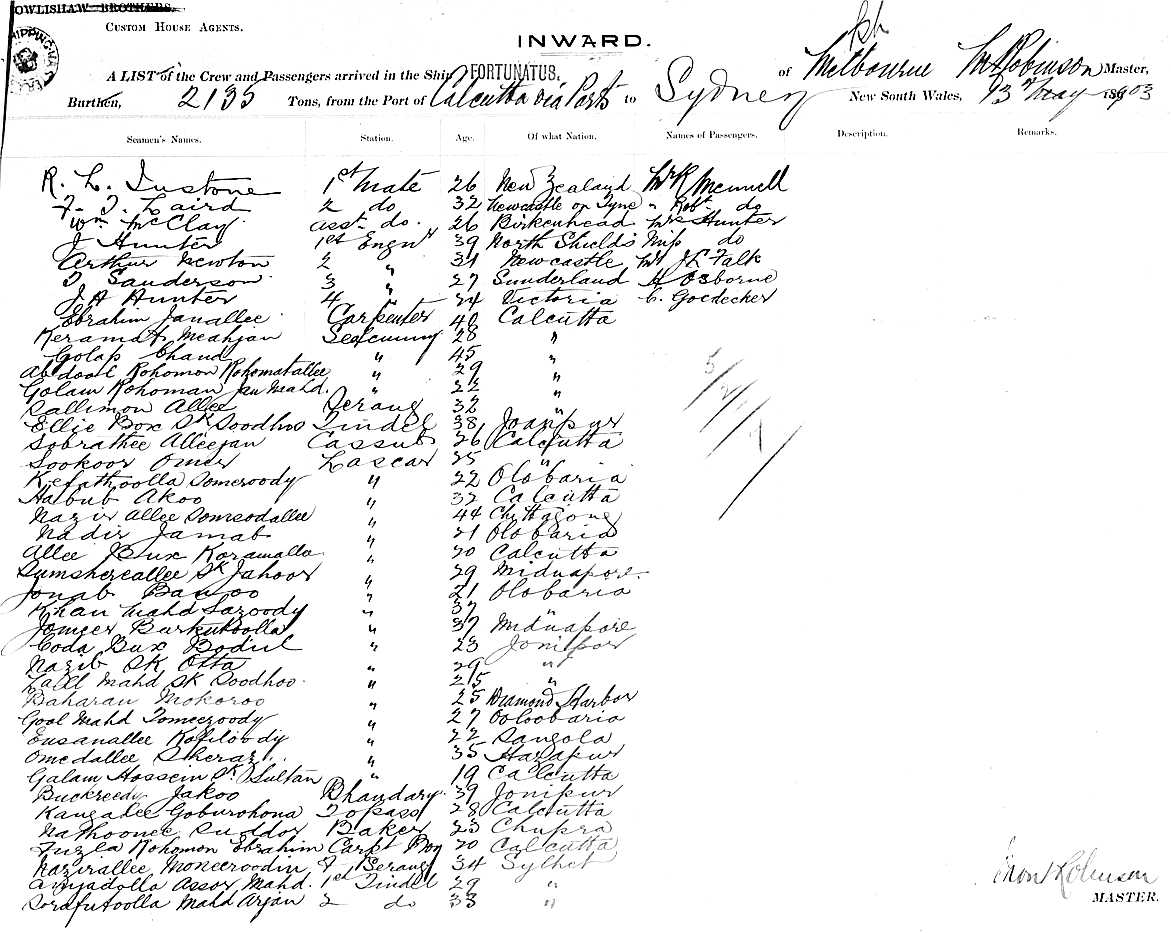 OWLISHAW BROTHERS.
CUSTOM HOUSE AGENTS.
INWARD.
A LIST of the Crew and Passengers arrived in the Ship FORTUNATUS. of Melbourne Robinson Master,
Burthen, 2135 Tons, from the Port of Calcutta via Ports to Sydney New South Wales, 13 May 1903
Seamen's Names. Station. Age. Of what Nation. Names of Passengers. Description. Remarks.
R. L. Instone 1st Mate 26 New Zealand Mr R Mennell
F. T. Laird 2 do 32 Newcastle on Tyne " Robt do
Wm McClay asst do. 26 Birkenhead Mrs Hunter
J Hunter 1st Engnr 39 North Shields Miss do
Arthur Newton 2 " 31 Newcastle Mr J L Falk
Sanderson 3 " 27 Sunderland H Osborne
J A Hunter 4 " 24 Victoria C. Goedecker
Ebrahim Janallee Carpenter 40 Calcutta
Keramat Meahjan 28 "
Golap Chand " 45 "
Abdool Rohomon Rohomatallee " 29 "
Golam Rohoman Jan Mahd. " 22 "
Sallimon Allee Serang 32 "
Ellie Box Sk Soodhoo Tindel 38 Joanpur
Sobrathee Alleejan Cassub 26 Calcutta
Sookoor Omer Lascar 25 "
Kefathoolla Someroody " 22 Olobaria
Habub Akoo " 32 Calcutta
Nazir Allee Somsodallee " 44 Chittagong
Nadir Jamab " 21 Olobaria
Allee Bux Koramalla " 20 Calcutta
Sumshereallee Sk Jahoor " 29 Midnapore
Jonab Banoo " 21 Olobaria
Khan Mahd Sazoody " 37 "
Jomeer Burkutoolla " 37 Midnapore
Coda Bux Bodiel " 23 Jonipor
Nazib SK Otta " 29 "
Lall Mahd SK Soodhoo " 25 "
Baharan Mokoroo " 25 Diamond Harbor
Gool Mahd Tomeeroody " 27 Ooloobaria
Ensanallee Kofiloody " 22 Sangola
Omedallee " 35 Hazapur
Galam Hossein Sk Sultan " 19 Calcutta
Buckreedy Jakoo Bhandary 39 Jonipur
Kangalee Goburohona Topass 28 Calcutta
Nathoonee Suddor Baker 23 Chupra
Fuzla Rohomon Ebrahim Carpt Boy 20 Calcutta
Nazirallee Moneeroodin F. Serang 34 Sylhet
Amjadolla Assor Mahd. 1st Tindel 29 "
Sorafutoolla Mahd Arjan 2 do 33 "
Robinson
MASTER.